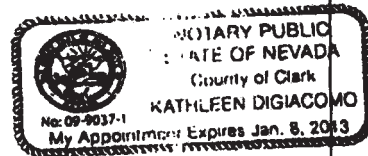 NOTARY PUBLIC
STATE OF NEVADA
County of Clark
KATHLEEN DIGIACOMO
No: 09-9037-1
My Appointment Expires Jan. 8, 2013